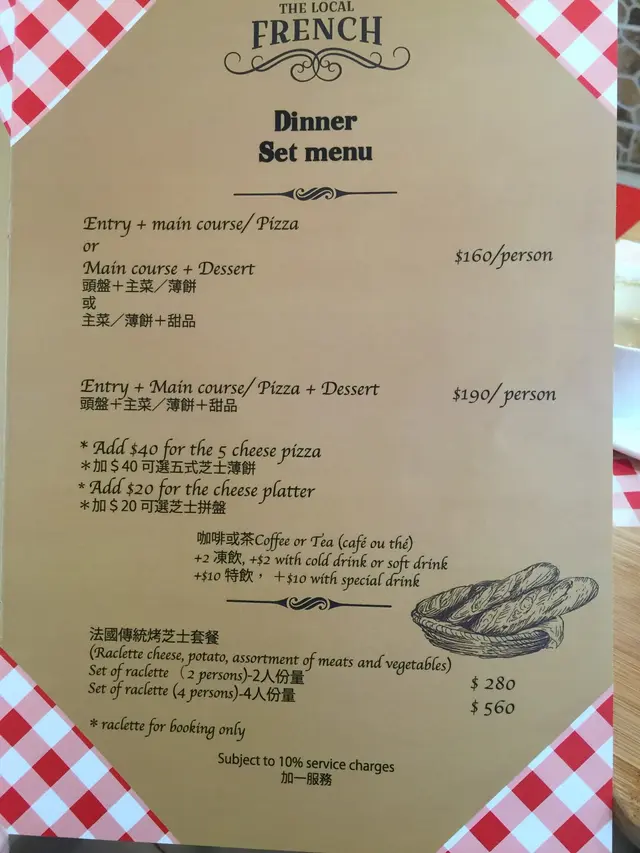 THE LOCAL
FRENCH
Dinner
Set menu
Entry + main course/ Pizza
or
Main course + Dessert
$160/person
頭盤＋主菜／薄餅
或
主菜／薄餅＋甜品
Entry + Main course/ Pizza + Dessert
$190/ person
頭盤＋主菜／薄餅＋甜品
* Add $40 for the 5 cheese pizza
＊加＄40 可選五式芝士薄餅
* Add $20 for the cheese platter
＊加＄20 可選芝士拼盤
咖啡或茶Coffee or Tea (café ou thé)
+2 凍飲, +$2 with cold drink or soft drink
+$10 特飲， ＋$10 with special drink
法國傳統烤芝士套餐
(Raclette cheese, potato, assortment of meats and vegetables)
Set of raclette （2 persons)-2人份量
$ 280
Set of raclette (4 persons)-4人份量
$ 560
* raclette for booking only
Subject to 10% service charges
加一服務